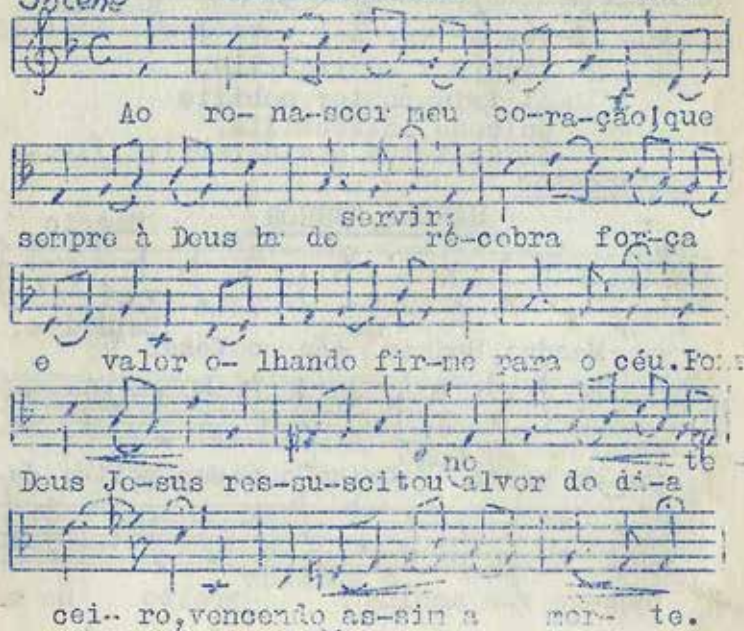 Solene
Ao re- na-scer meu co-ra-ção!que
servir;
sempre à Deus ha de ré-cobra for-ça
e valor o- lhando fir-me para o céu.
no te
Deus Jo-sus res-su-scitou alvor do di-a
cei-- ro,vencendo as-sim a mor-- te.